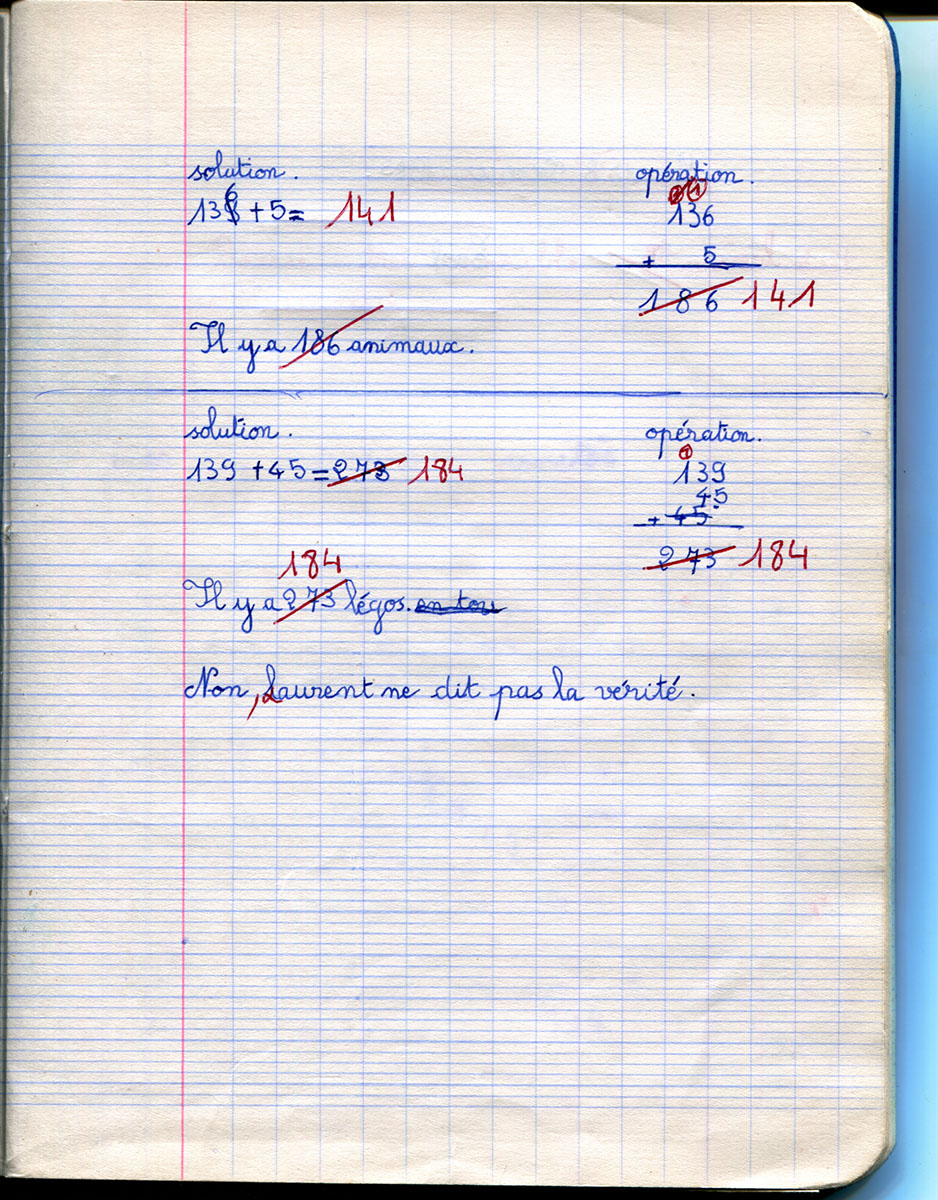 solution. opération.
136 + 5 = 141
1
136
+ 5
186 141
Il y a 186 animaux.
solution. opération.
139 + 45 = 273 184
1
139
45
+ 45
273 184
184
Il y a 273 légos. en tou
Non, Laurent ne dit pas la vérité.